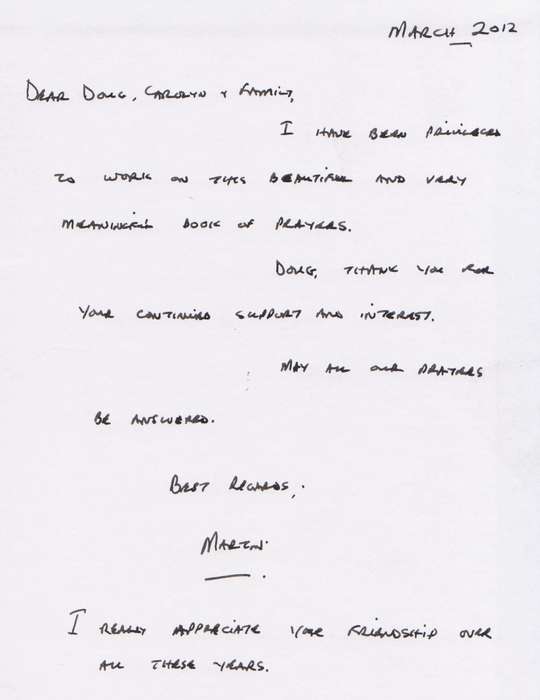 MARCH 2012
DEAR DOUG, CAROLYN & FAMILY,
I HAVE BEEN PRIVILEGED
TO WORK ON THIS BEAUTIFUL AND VERY
MEANINGFUL BOOK OF PRAYERS.
DOUG, THANK YOU FOR
YOUR CONTINUED SUPPORT AND INTEREST.
MAY ALL OUR PRAYERS
BE ANSWERED.
BEST REGARDS,
MARTIN.
I REALLY APPRECIATE YOUR FRIENDSHIP OVER
ALL THESE YEARS.